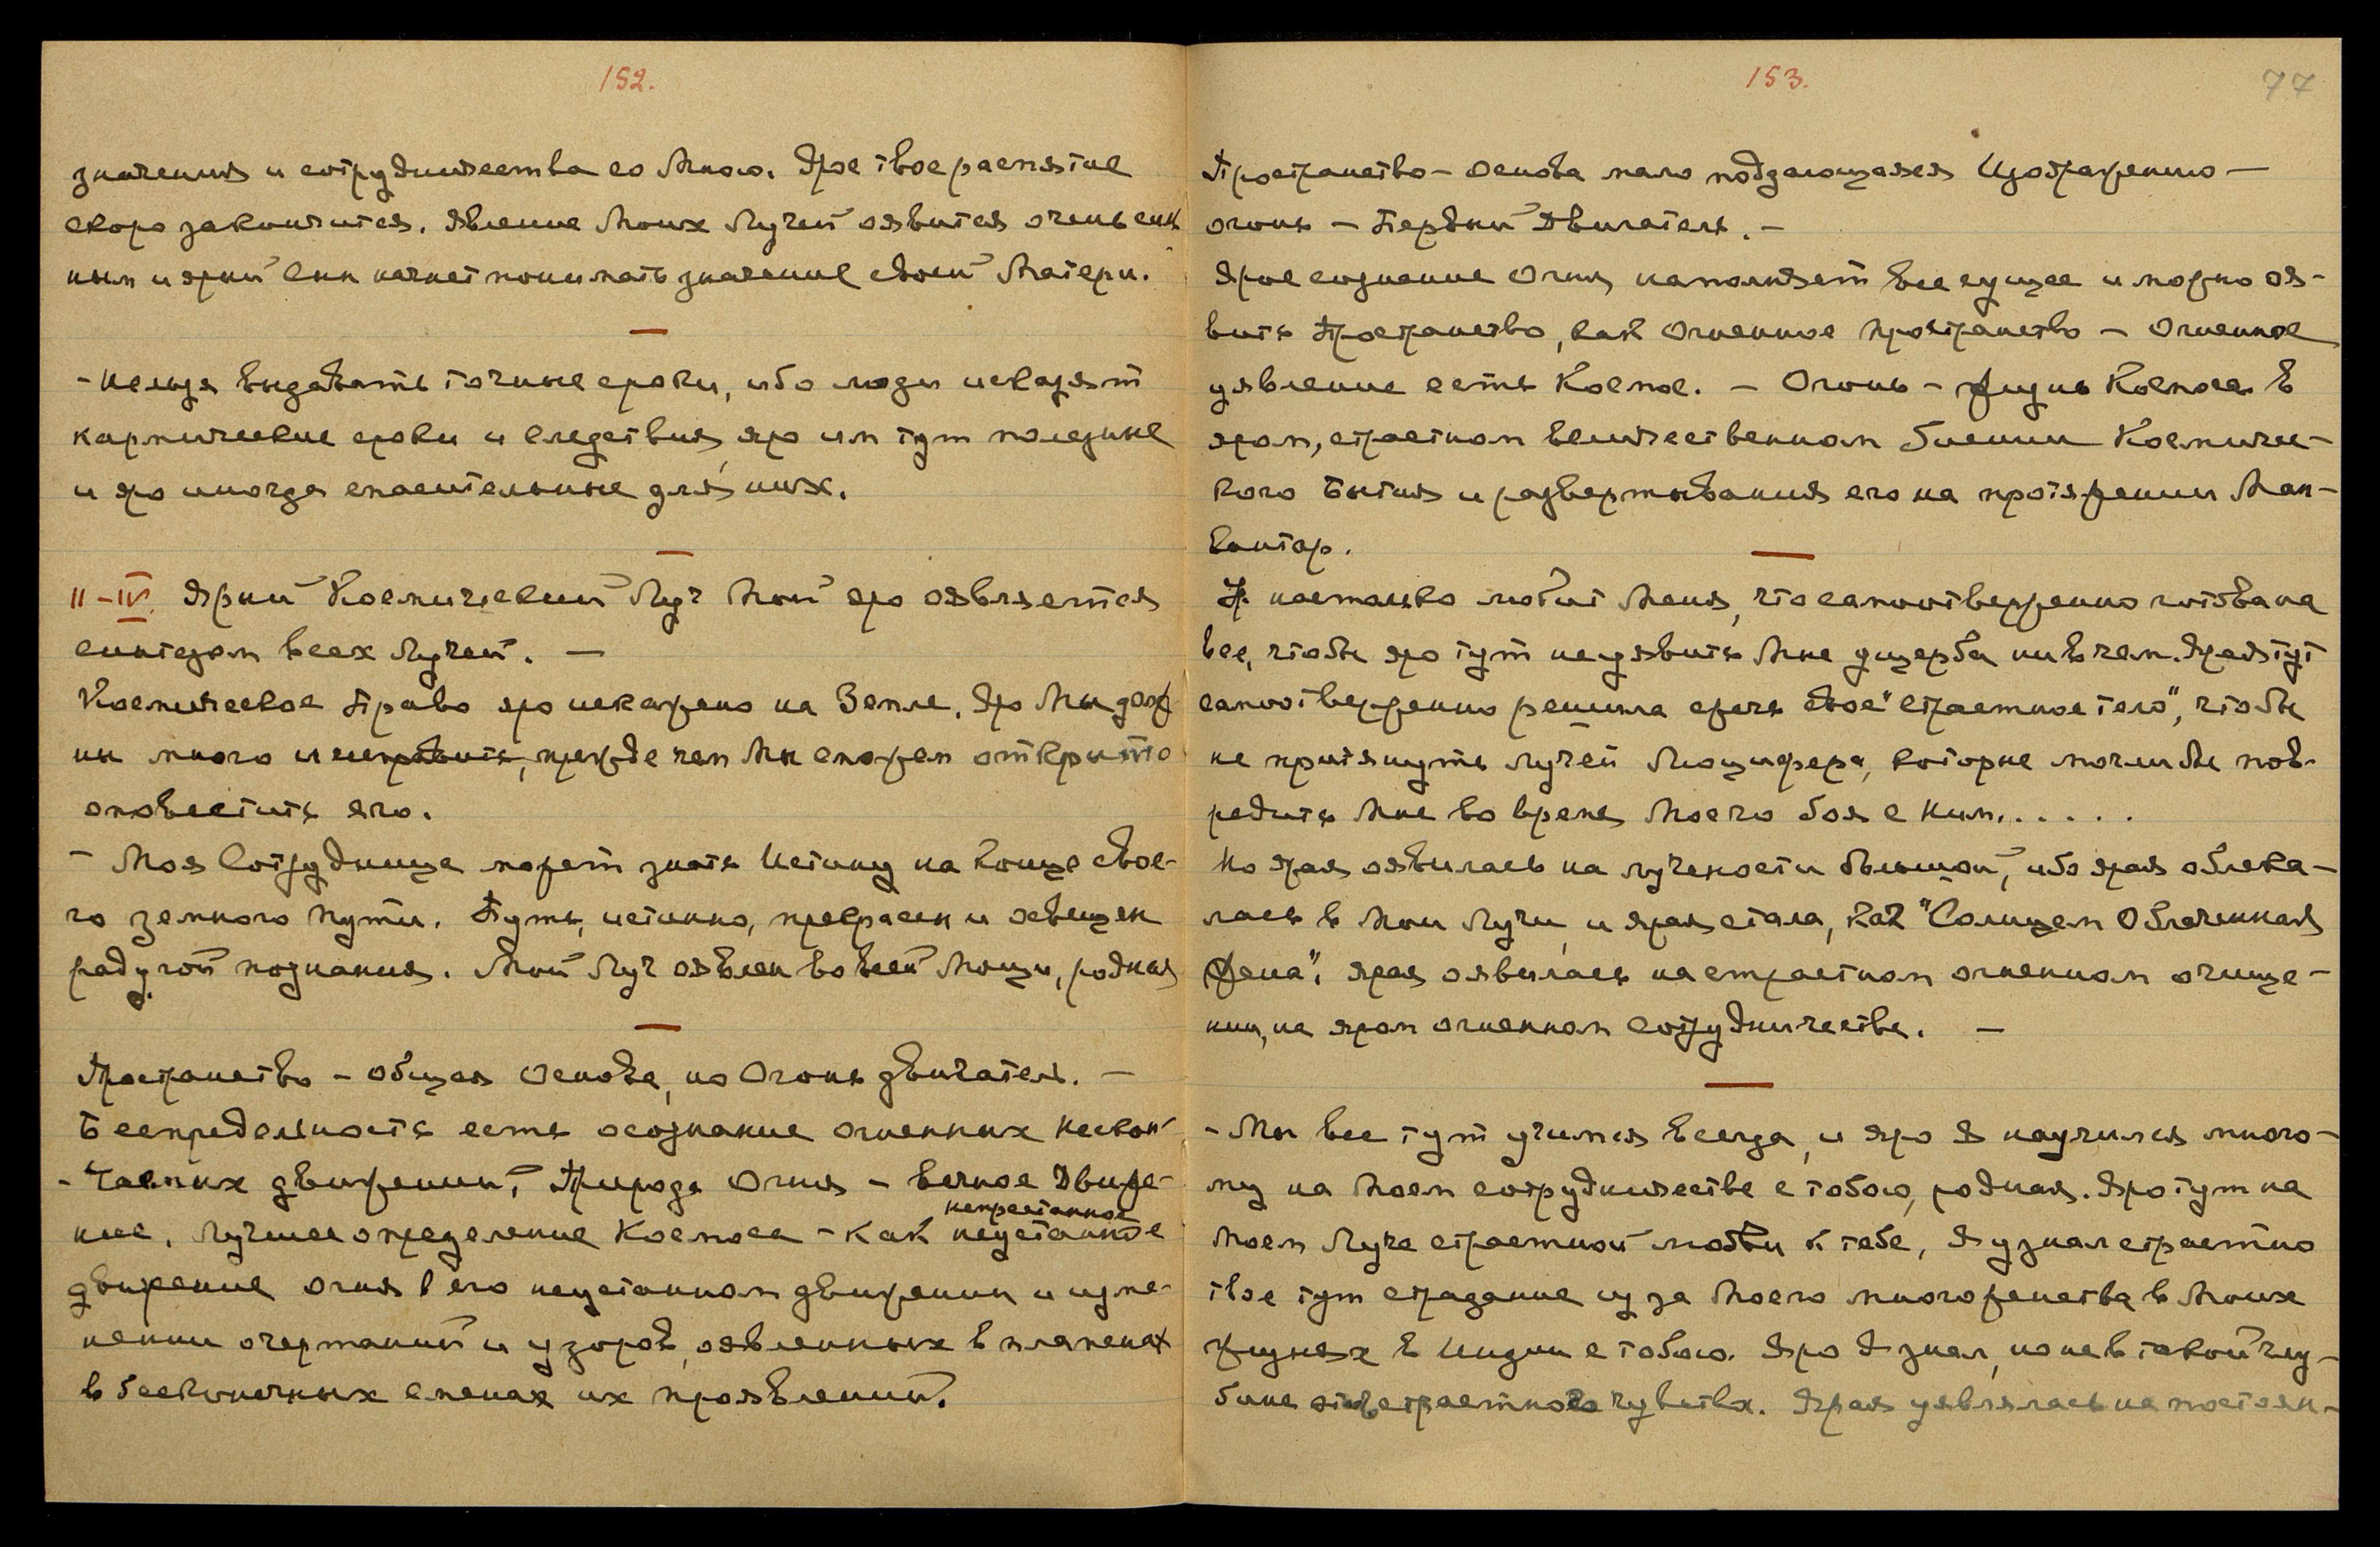 152.
значения и сотрудничества со Мною. Ярое твое распятие
скоро закончится. Явление Моих Лучей оявится очень силь
ным и ярый сын начнет понимать значение своей Матери.
- Нельзя выдавать точные сроки, ибо люди исказят
кармические сроки и следствия, яро им тут полезные
и яро иногда спасительные для них.
11-IV. Ярый Космический Луч Мой яро оявляется
синтезом всех Лучей. —
Космическое Право яро искажено на Земле. Яро Мы долж
ны много исправить, прежде чем Мы сможем открыто
оповестить его.
- Моя Сотрудница может знать Истину на конце свое-
го земного Пути. Путь, истинно, прекрасен и освещен
радугой познания. Мой Луч оявлен во всей Мощи, родная
Пространство - общая Основа, но Огонь двигатель. —
Беспредельность есть осознание огненных нескон-
- чаемых движений. Природа Огня - вечное Движе-
ние. Лучшее определение Космоса - как неустанное
непрестанное
движение огня в его неустанном движении и изме-
нении очертаний и узоров, оявленных в пламенах
в бесконечных сменах их проявлений.
153.
77
Пространство - Основа мало поддающаяся Изображению —
огонь - Первый Двигатель. -
Ярое сознание Огня наполняет все сущее и можно оя-
вить Пространство, как Огненное пространство - Огненное
уявление есть Космос. - Огонь - жизнь Космоса в
яром, страстном величественном биении Космичес-
кого Бытия и развертывания его на протяжении Ман-
вантар.
У. настолько любит Меня, что самоотверженно готова на
все, чтобы яро тут не уявить Мне ущерба ни в чем. Ярая тут
самоотверженно решила сжечь свое "страстное тело", чтобы
не притянуть лучей Люцифера, которые могли бы пов-
редить Мне во время Моего боя с Ним. . . . . .
Но ярая оявилась на лучености большой, ибо ярая облека-
лась в Мои Лучи, и ярая стала, как "Солнцем Облаченная
Жена". Ярая оявилась на страстном огненном очище-
нии, на яром огненном сотрудничестве. —
- Мы все тут учимся всегда, и яро Я научился много-
му на Моем сотрудничестве с тобою, родная. Яро тут на
Моем Луче страстной любви к тебе, Я узнал страстно
твое тут страдание из за Моего многоженства в Моих
жизнях в Индии с тобою. Яро Я знал, но не в такой глу-
бине страстного чувства. Ярая уявлялась на постоян-